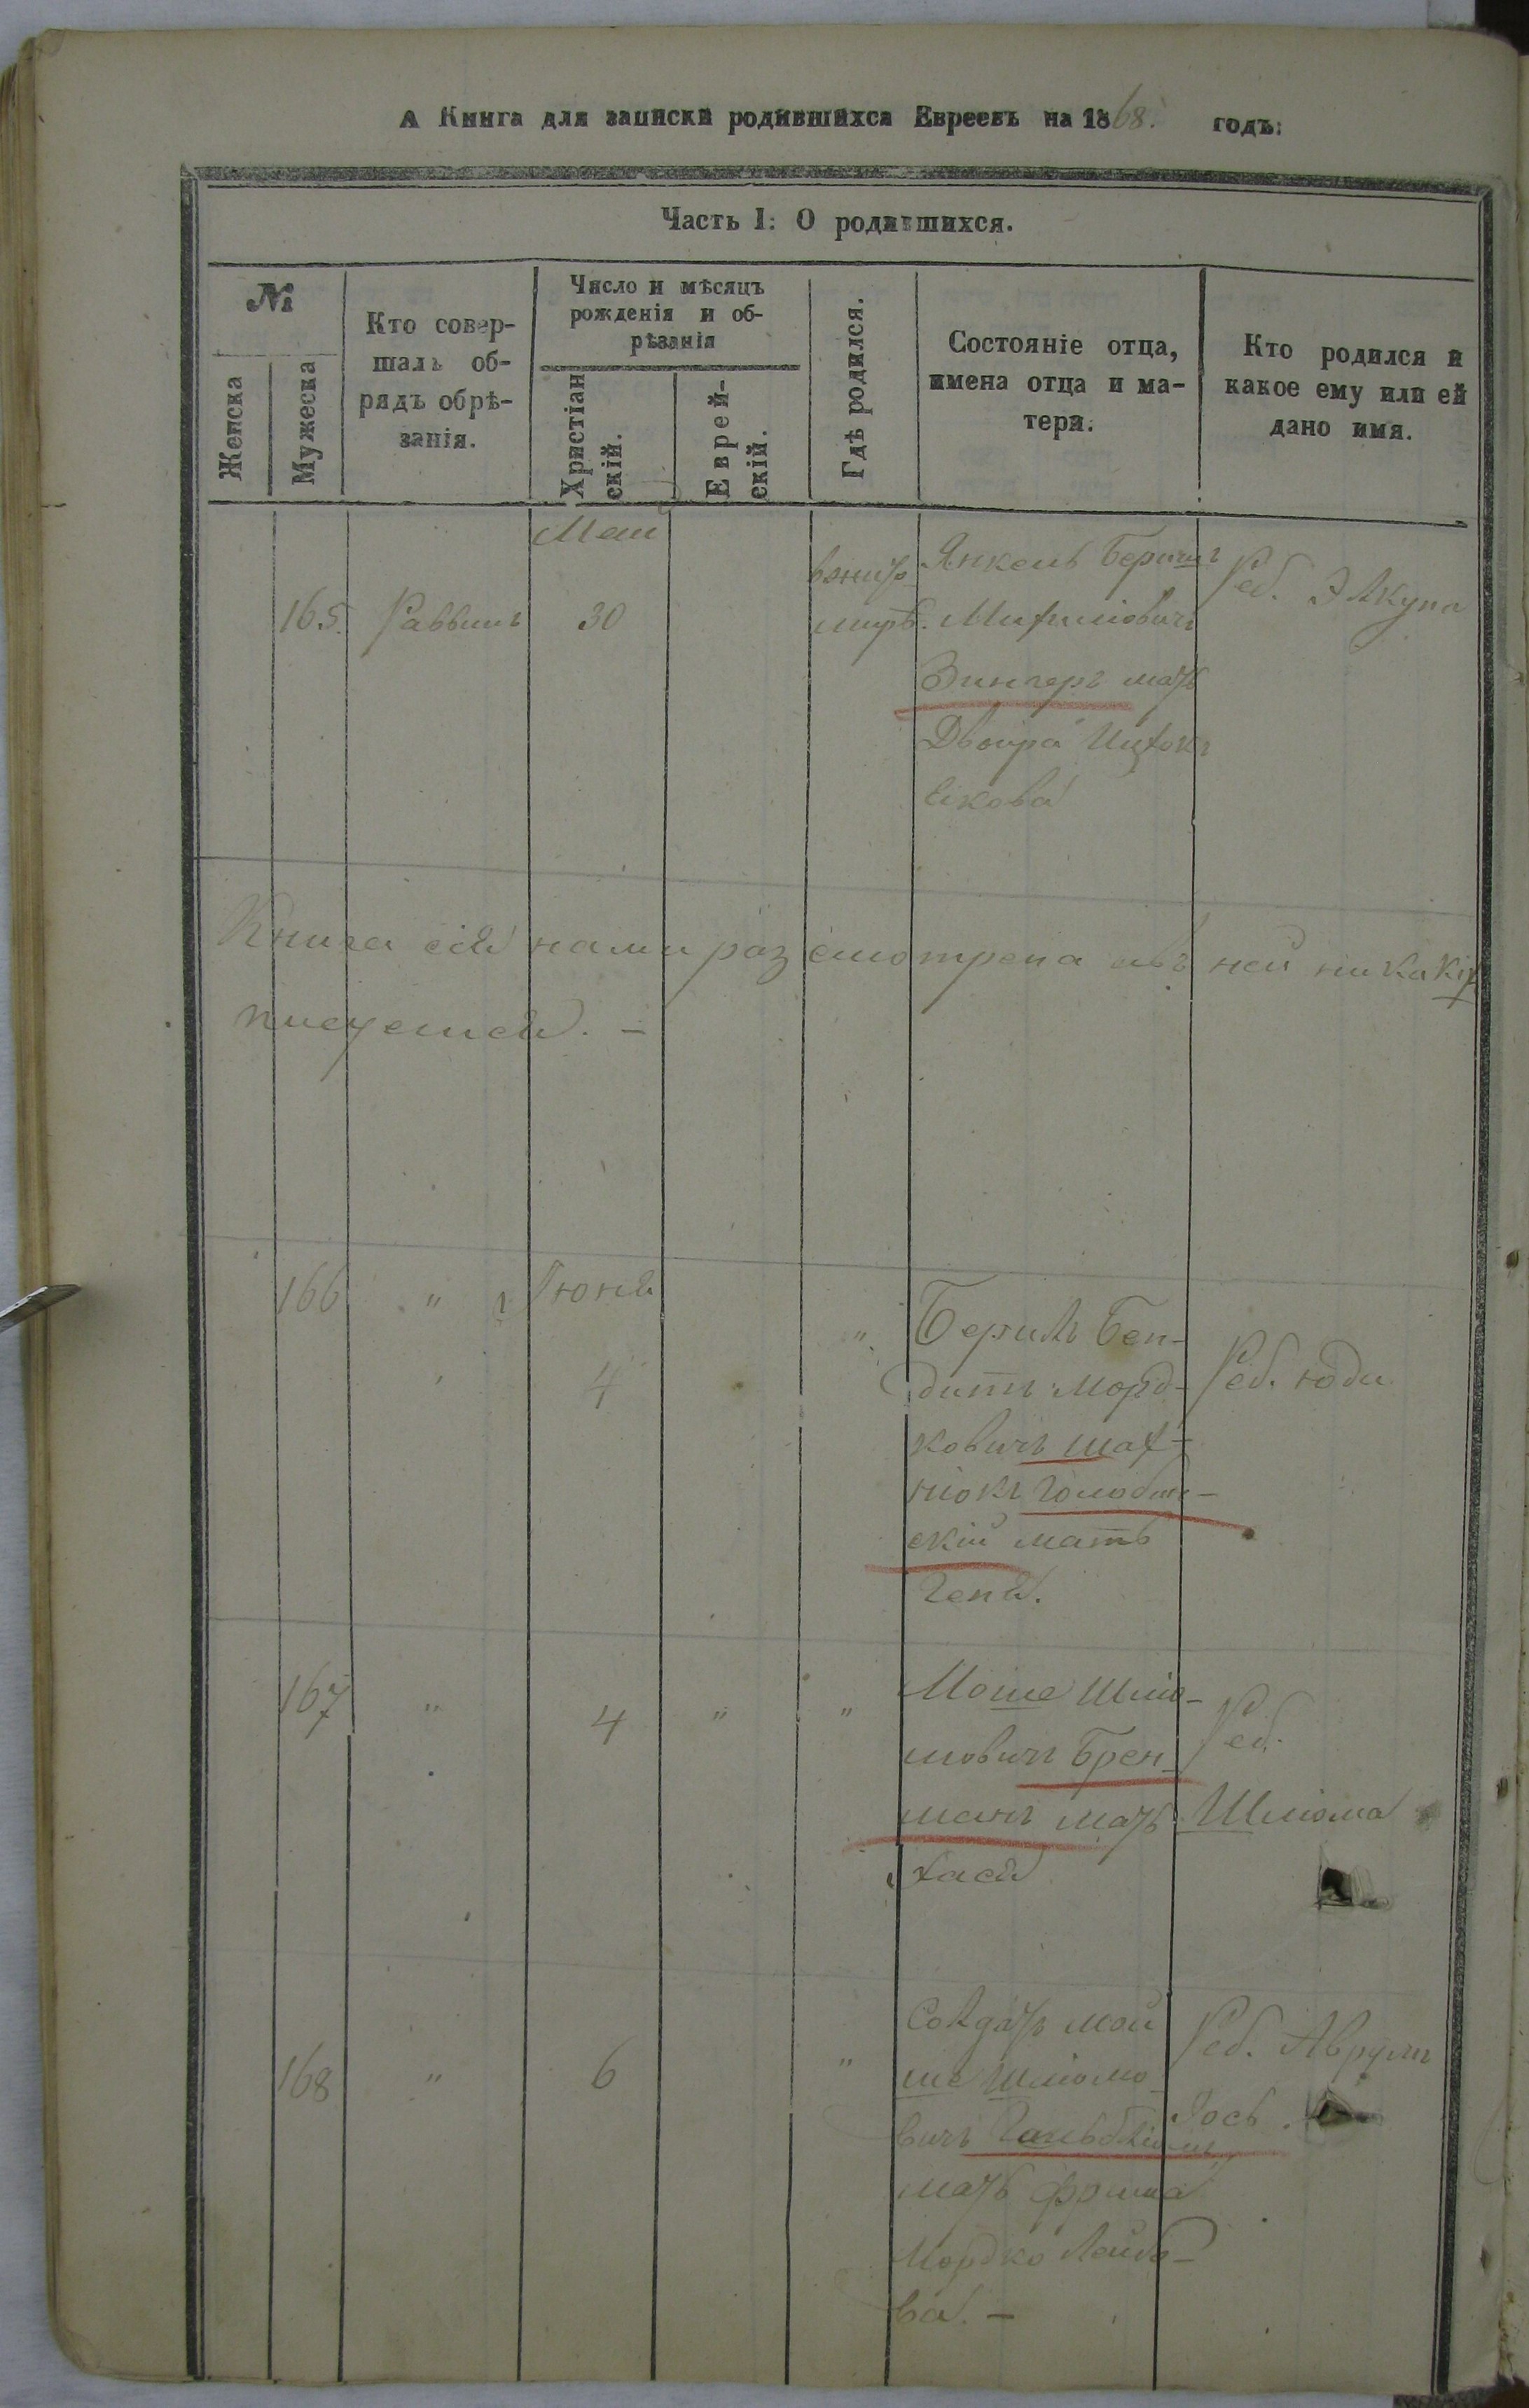 А Книга для записки родившихся Евреевъ на 1868. годъ:
Часть I: О родившихся.
№
Женска
Мужеска
Кто совер-
шалъ об-
рядъ обрѣ-
занія.
Число и мѣсяцъ
рожденія и об-
рѣзанія
Христіан
скій.
Еврей-
скій.
Гдѣ родился.
Состояніе отца,
имена отца и ма-
тери.
Кто родился и
какое ему или ей
дано имя.
Маи
165. Раввинъ 30
Янкель Беришъ
Зингеръ мать
Двойра Ицхокъ
Еікова
Реб.
Книга сія нами разсмотрена и въ ней никакіх
166 " Іюня
4
"
Берилъ Бен-
дитъ Морд-
ковичъ шах-
нюкъ Голобот-
скій мать
Геня.
Реб. юди
167 " 4 " "
Моше Шліо-
мовичъ Брен-
манъ мать
хася
Реб.
Шліома
168 " 6 "
Солдатъ мой
ше Шліомо-
вичъ Гольдбліонъ
мать фрима
Мордко Лейбо-
ва. –
Реб. Аврумъ
Іось